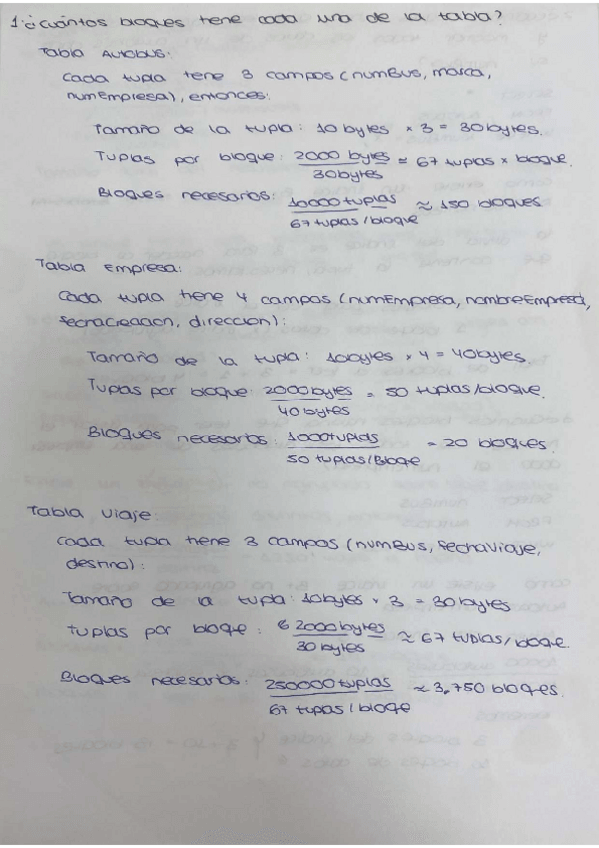 1. ¿cuántos bloques tiene cada una de la tabla?
Tabla Autobus:
Cada tupla tene 3 campos (numBus, marca,
numEmpresa), entonces:
Tamaño de la tupla: 10 bytes × 3 = 30 bytes.
Tuplas por bloque: 2000 bytes / 30 bytes ≈ 67 tuplas × bloque.
Bloques necesarios: 10000 tuplas / 67 tuplas / bloque ≈ 150 bloques
Tabla Empresa:
Cada tupla tiene 4 campos (numEmpresa, nombreEmpresa,
fechacreacion, direccion):
Tamaño de la tupla: 10 bytes × 4 = 40 bytes.
Tuplas por bloque: 2000 bytes / 40 bytes = 50 tuplas/bloque.
Bloques necesarios: 1000 tuplas / 50 tuplas/Bloqe = 20 bloques.
Tabla Viaje:
Cada tupla tiene 3 campos (numBus, fechaViaje,
destino):
Tamaño de la tupla: 10 bytes × 3 = 30 bytes
tuplas por bloque: 2000 bytes / 30 bytes ≈ 67 tuplas/bloque.
Bloques necesarios: 250000 tuplas / 67 tupas / bloqe ≈ 3.750 bloqes.